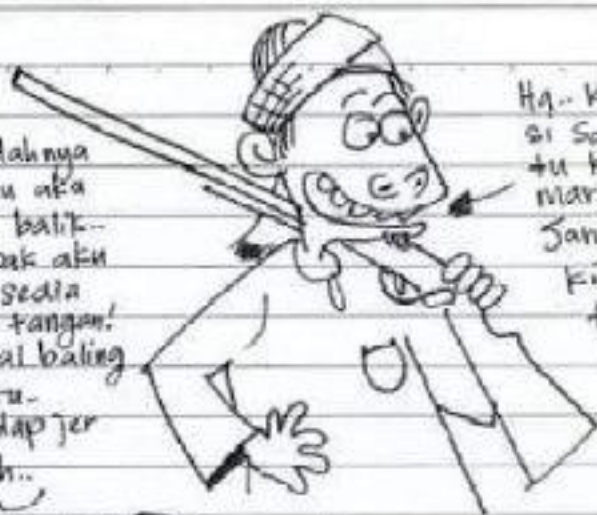 dahnya
u aka
balik..
pak aku
sedia
tangan!
al baling
tu..
dap jer
h..
Ha.. K
si Sa
tu k
mar
Jan